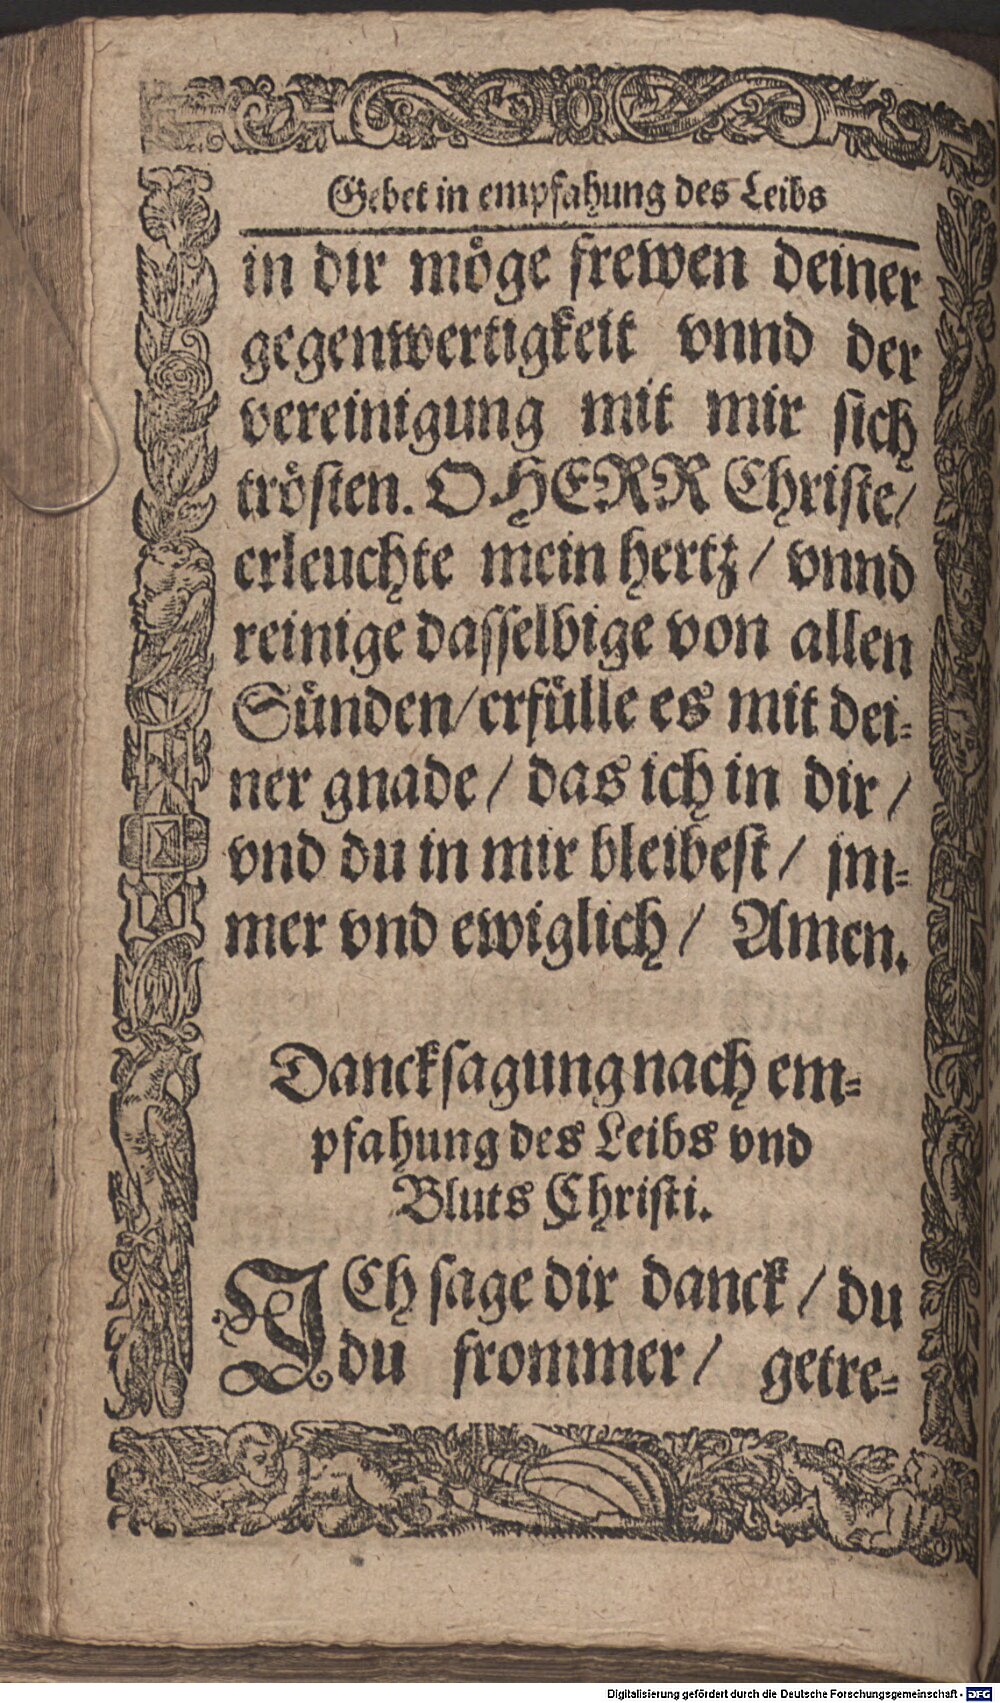 Gebet in empfahung des Leibs
in dir möge frewen deiner
gegenwertigkeit vnnd der
vereinigung mit mir sich
trösten. O HERR Christe/
erleuchte mein hertz/ vnnd
reinige dasselbige von allen
Sünden/ erfülle es mit dei-
ner gnade/ das ich in dir/
vnd du in mir bleibest/ jm-
mer vnd ewiglich/ Amen.
Dancksagung nach em-
pfahung des Leibs vnd
Bluts Christi.
ICh sage dir danck/ du
du frommer/ getre-
Digitalisierung gefördert durch die Deutsche Forschungsgemeinschaft - DFG